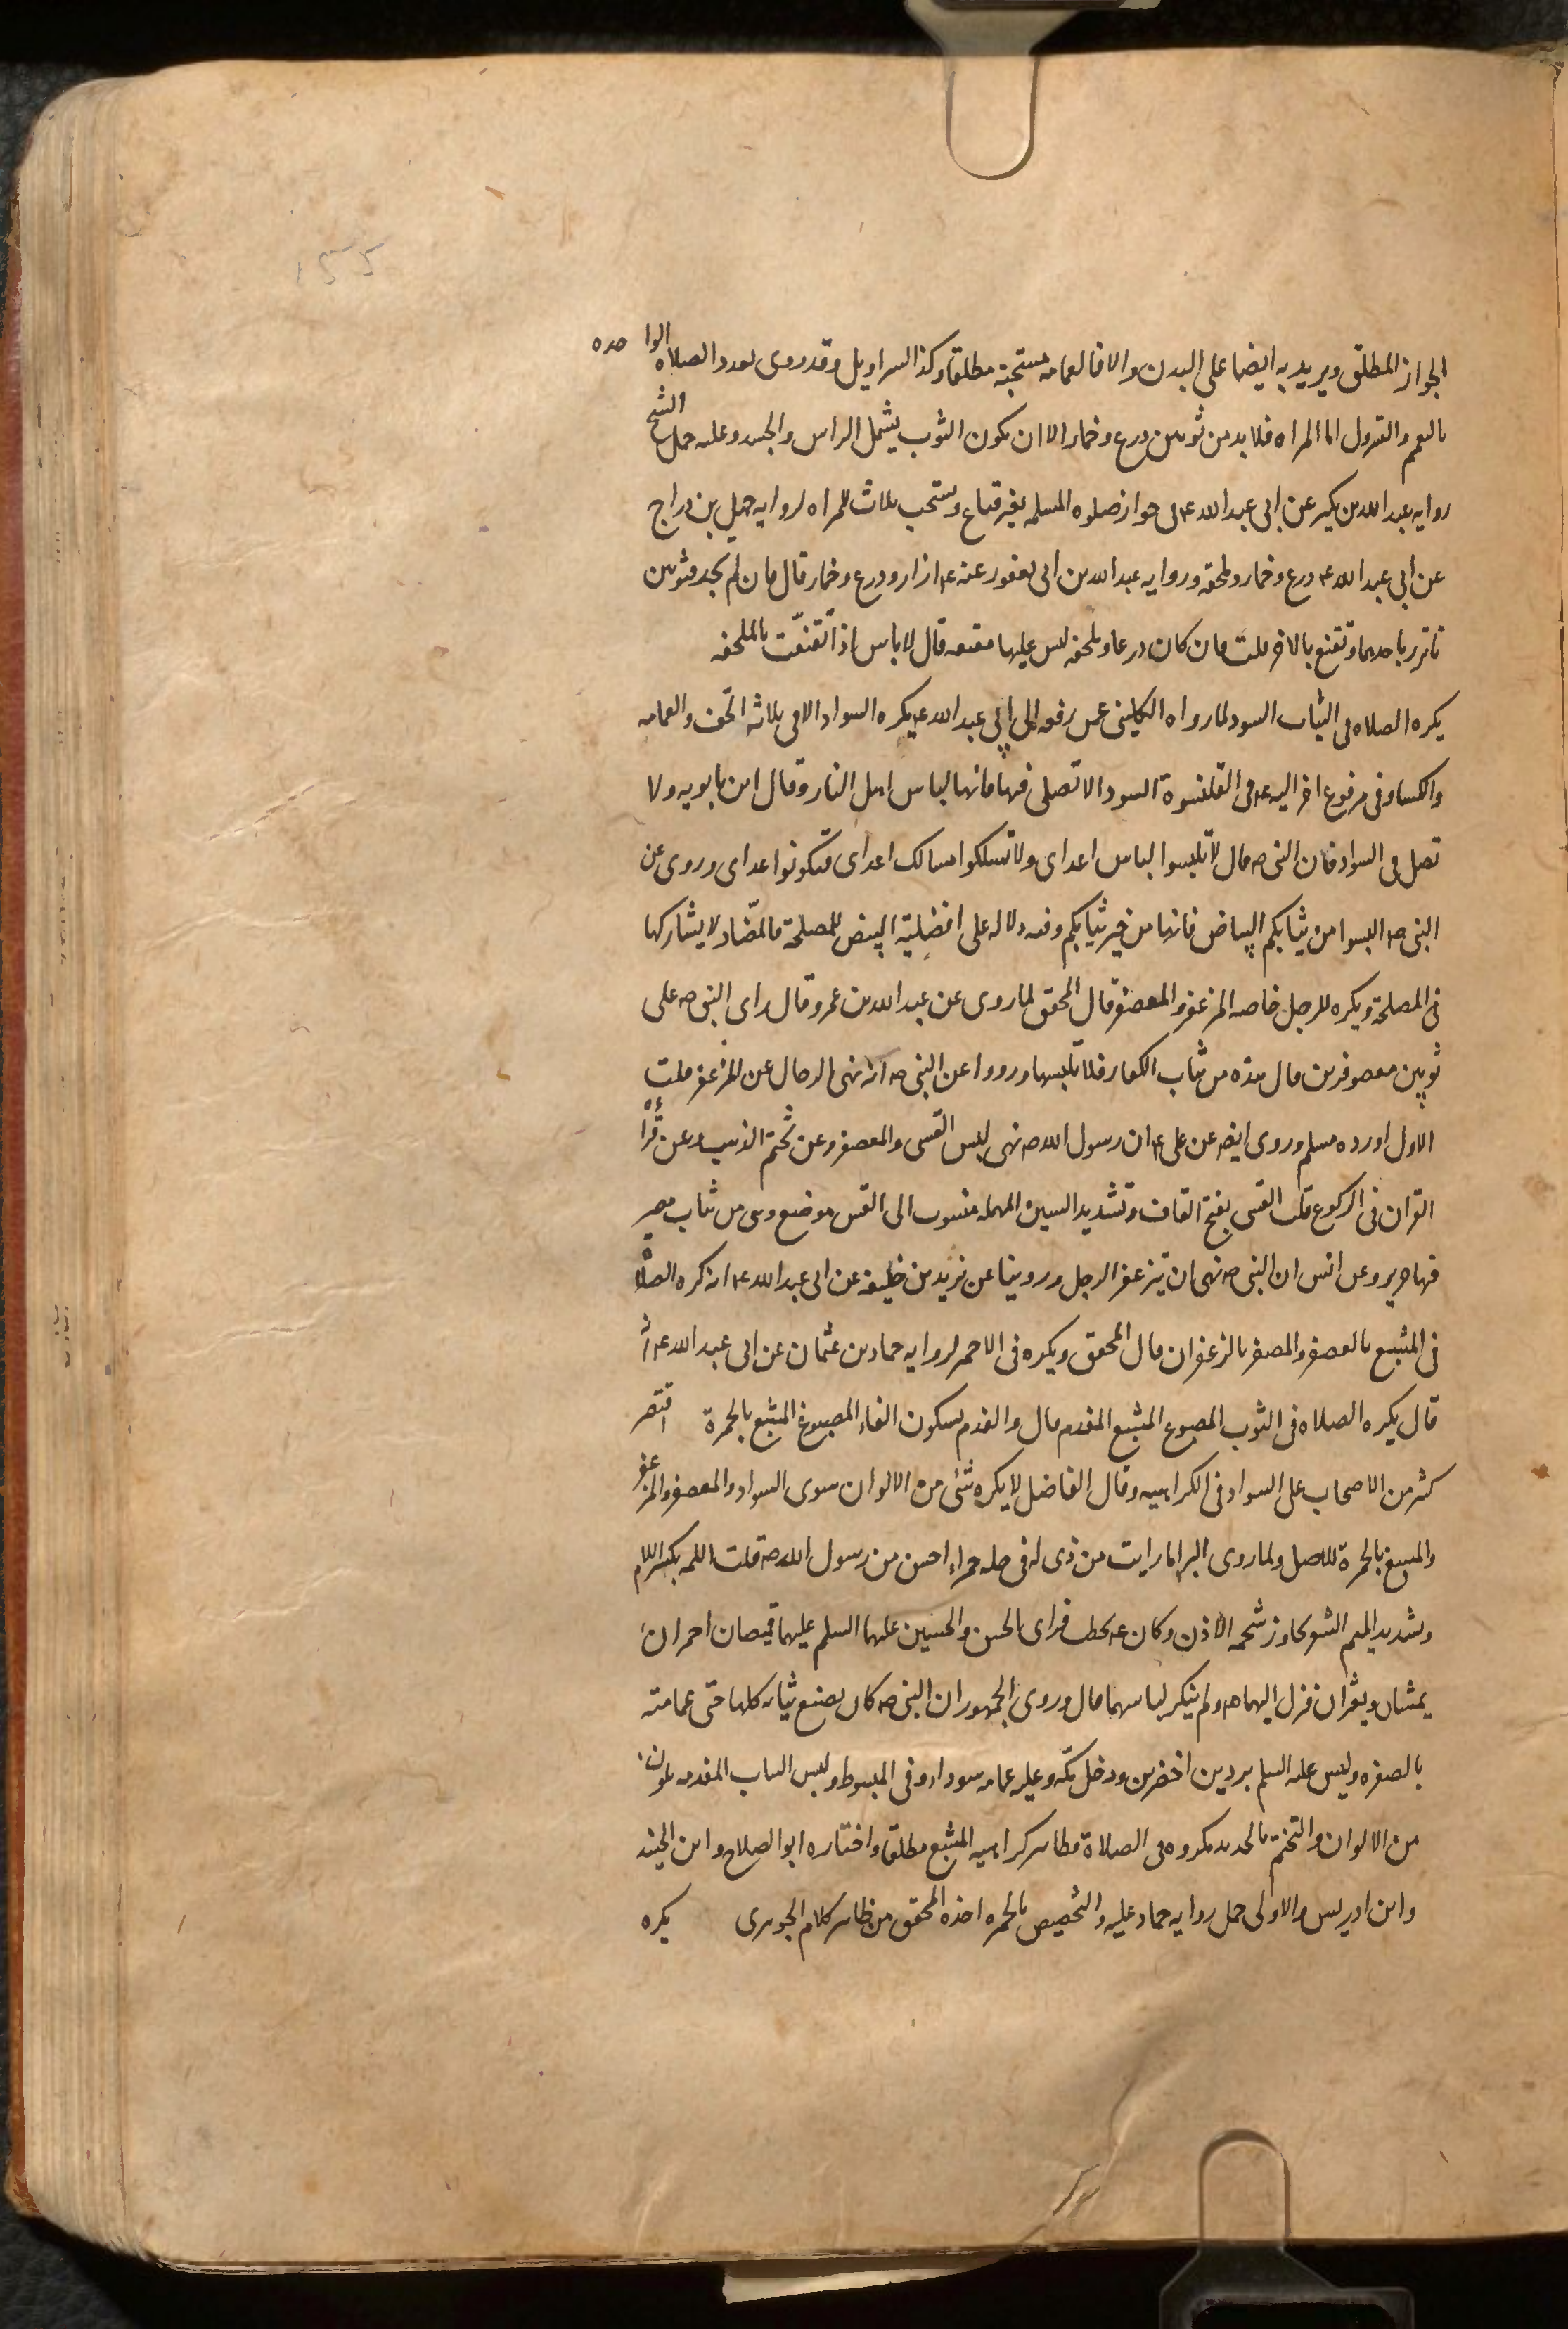 الجواز المطلق ويريد به ايضا على البدن والا فالعمامه مستحبة مطلقا وكذا السراويل وقد روى تعدد الصلاة الواحده
بالتعمم والتسرول اما المراه فلا بد من ثوبين درع وخمار الا ان يكون الثوب يشمل الراس والجسد وعليه حمل الشيخ
روايه عبد الله بن بكير عن ابى عبد الله ع فى جواز صلوه المسلمه بغير قناع ويستحب ثلاث للمراه لروايه جميل بن دراج
عن ابى عبد الله ع درع وخمار وملحفه وروايه عبد الله بن ابى يعفور عنه ع ازار ودرع وخمار قال فان لم تجد فثوبين
تاتزر باحدهما وتقنع بالاخر قلت فان كان درعا وملحفه ليس عليها مقنعه قال لا باس اذا تقنعّت بالملحفه
يكره الصلاه فى الثياب السود لما رواه الكلينى عمن رفعه الى ابى عبد الله ع يكره السواد الا فى ثلاثه الخف والعمامه
والكساء وفى مرفوع اخر اليه ع فى القلنسوة السوداء لا تصلى فيها فانها لباس اهل النار وقال ابن بابويه ولا
تصل فى السواد فان النبى ص قال لا تلبسوا لباس اعداى ولا تسلكوا مسالك اعداى فتكونوا اعداى وروى عن
النبى ص البسوا من ثيابكم البياض فانها من خير ثيابكم وفيه دلاله على افضلية البيض للمصلحة فالمضّاد لا يشاركها
فى المصلحة ويكره للرجل خاصه المزعفر والمعصفر قال المحقق لما روى عن عبد الله بن عمرو قال راى النبى ص على
ثوبين معصوفرين فقال هذه من ثياب الكفار فلا تلبسها ورووا عن النبى ص انه نهى الرجال عن المزعفر قلت
الاول اورده مسلم وروى ايضه عن على ع ان رسول الله ص نهى لبس القسى والمعصفر وعن تختم الذهب وعن قرأة
القران فى الركوع قلت القسى بفتح القاف وتشديد السين المهمله منسوب الى القس موضع وهى من ثياب مصر
فيها حرير وعن انس ان النبى ص نهى ان يتزعفر الرجل وروينا عن يزيد بن خليفه عن ابى عبد الله ع انه كره الصلاة
فى المشبع بالعصفر والمصفر بالزعفران قال المحقق ويكره فى الاحمر لروايه حماد بن عثمان عن ابى عبد الله ع انه
قال يكره الصلاه فى الثوب المصبوغ المشبع المفدم قال والفدم بسكون الفاء المصبوغ المشبع بالحمرة اقتصر
كثر من الاصحاب على السواد فى الكراهيه وقال الفاضل لا يكره شئ من الالوان سوى السواد والمعصفر والمزعفر
والمشبع بالحمرة للاصل ولما روى البراء ما رايت من ذى لمة فى حله حمراء احسن من رسول الله ص قلت اللمه بكسر اللام
وتشديد الميم الشعر يجاوز شحمه الاذن وكان ع يخطب فراى الحسن والحسين عليهما السلم عليهما قميصان احمران
يمشيان ويعثران فنزل اليهما ص ولم ينكر لباسهما قال وروى الجمهور ان النبى ص كان يصبغ ثيابه كلها حتى عمامته
بالصفره ولبس عليه السلم بردين اخضرين ودخل مكّه وعليه عمامه سوداء وفى المبسوط ولبس الثياب المفدمه بلون
من الالوان والتختم بالحديد مكروه فى الصلاة فظاهره كراهيه المشبع مطلقا واختاره ابو الصلاح وابن الجنيد
وابن ادريس والاولى حمل روايه حماد عليه والتخصيص بالحمره اخذه المحقق من ظاهر كلام الجوهرى يكره